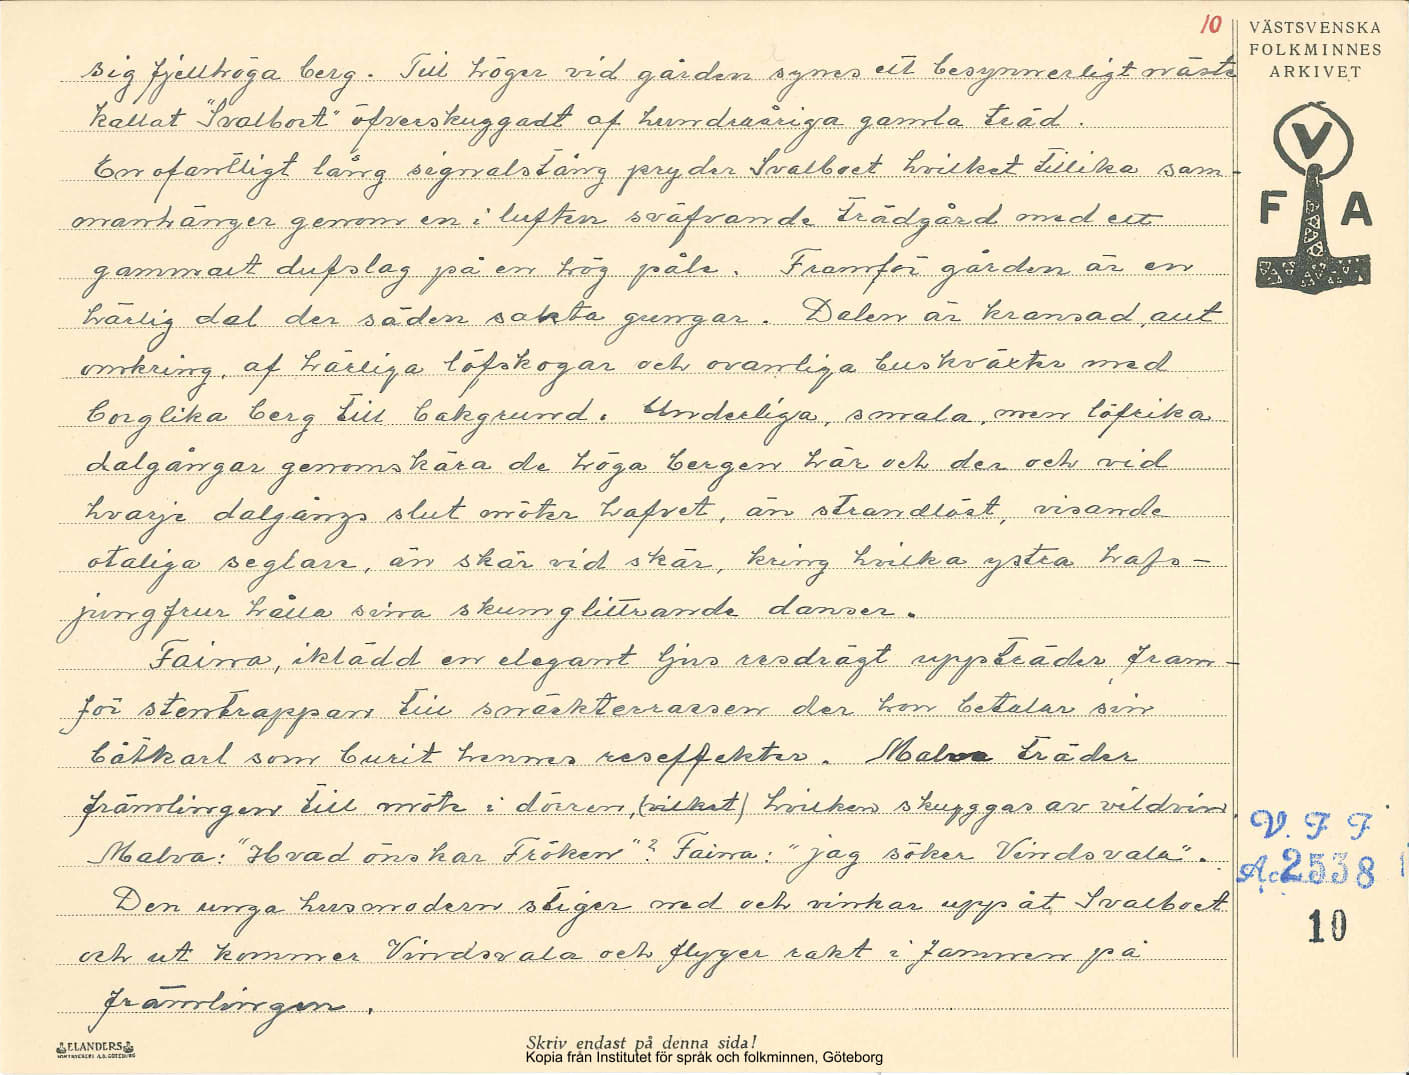 10
VÄSTSVENSKA
FOLKMINNES
ARKIVET
V
F A
sig fjellhöga berg. Till höger vid gården synes ett besynnerligt näste
kallat "Svalboet" öfverskuggadt af hundraåriga gamla träd.
En ofantligt lång signalstång pryder Svalboet hvilket tillika sam-
manhänger genom en i luften sväfvande trädgård med ett
gammalt dufslag på en hög påle. Framför gården är en
härlig dal der säden sakta gungar. Dalen är kransad, allt
omkring, af härliga löfskogar och ovanliga buskväxter med
borglika berg till bakgrund. Underliga, smala, men löfrika
dalgångar genomskära de höga bergen här och der och vid
hvarje dalgångs slut möter hafvet, än strandlöst, visande
otaliga seglare, än skär vid skär, kring hvilka ystra hafs-
jungfrur hålla sina skumglittrande danser.
Faina, iklädd en elegant ljus resdrägt uppträder fram-
för stentrappan till snäckterrassen der hon betalar sin
båtkarl som burit hennes reseffekter. Malva träder
främlingen till möte i dörren, (vilket) hvilken skuggas av vildvin.
Malva: "Hvad önskar Fröken"? Faina: "jag söker Vindsvala".
Den unga husmodern stiger ned och vinkar uppåt Svalboet
och ut kommer Vindsvala och flyger rakt i famnen på
främlingen.
V. F. F.
Acc. 2538
10
ELANDERS
Skriv endast på denna sida!
Kopia från Institutet för språk och folkminnen, Göteborg